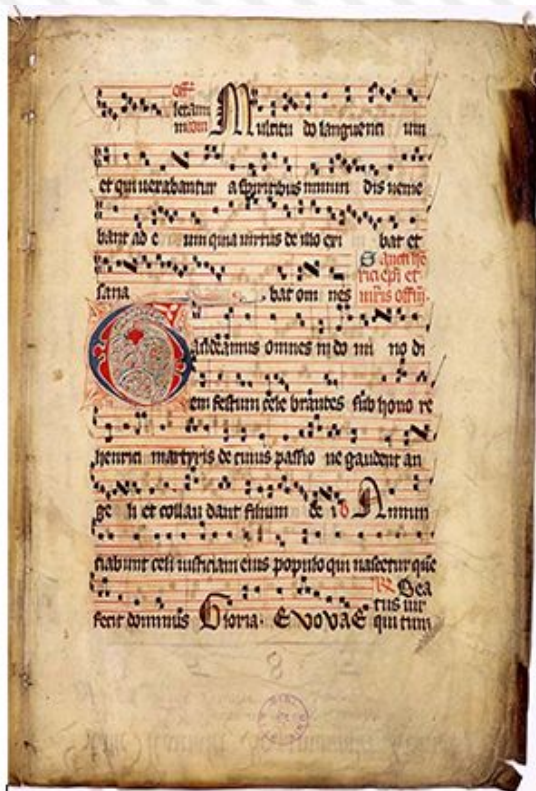 Multitu do languenti um
et qui uexabantur a spiritibus inmun dis uenie
bant ad e um quia uirtus de illo exi bat et
sana bat om nes
Gaudeamus omnes in do mi no di
em festum cele brantes sub hono re
henrici martyris de cuius passio ne gaudent an
ge li et collau dant filium de i Annun
ciabunt celi iusticiam eius populo qui nascetur que
fecit dominus Gloria. EVOVAE
Bea
tus uir
qui tim
8